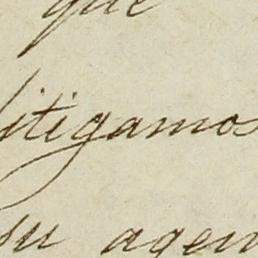 que
litigamos
su agen